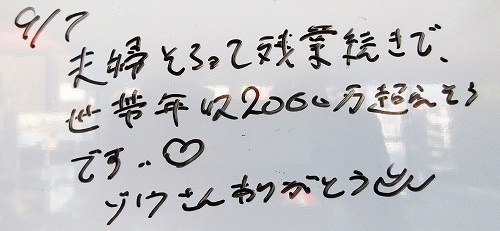 9/7
夫婦そろって残業続きで、
世帯年収2000万超えそう
です..♡
ゾウさんありがとう